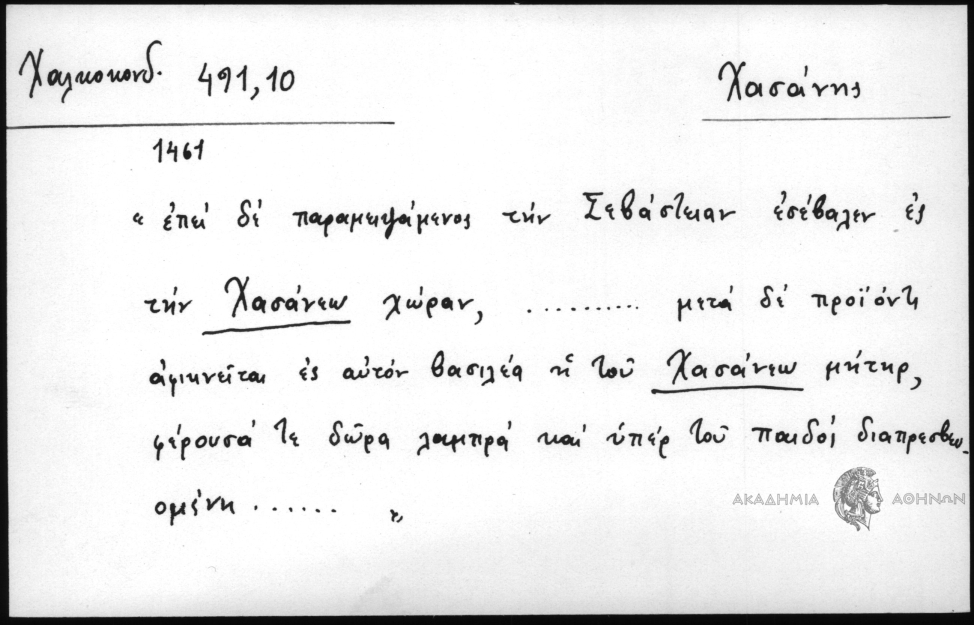 Χαλκοκονδ. 491,10 Χασάνης
1461
« ἐπεί δέ παραμειψάμενος τήν Σεβάστειαν ἐσέβαλεν ἐς
τήν Χασάνεω χώραν, .......... μετά δέ προϊόντι
ἀφικνεῖται ἐς αὐτόν βασιλέα ἥ τοῦ Χασάνεω μήτηρ,
φέρουσά τε δῶρα λαμπρά καί ὑπέρ τοῦ παιδός διαπρεσβευ-
ομένη ...... »
ΑΚΑΔΗΜΙΑ ΑΘΗΝΩΝ